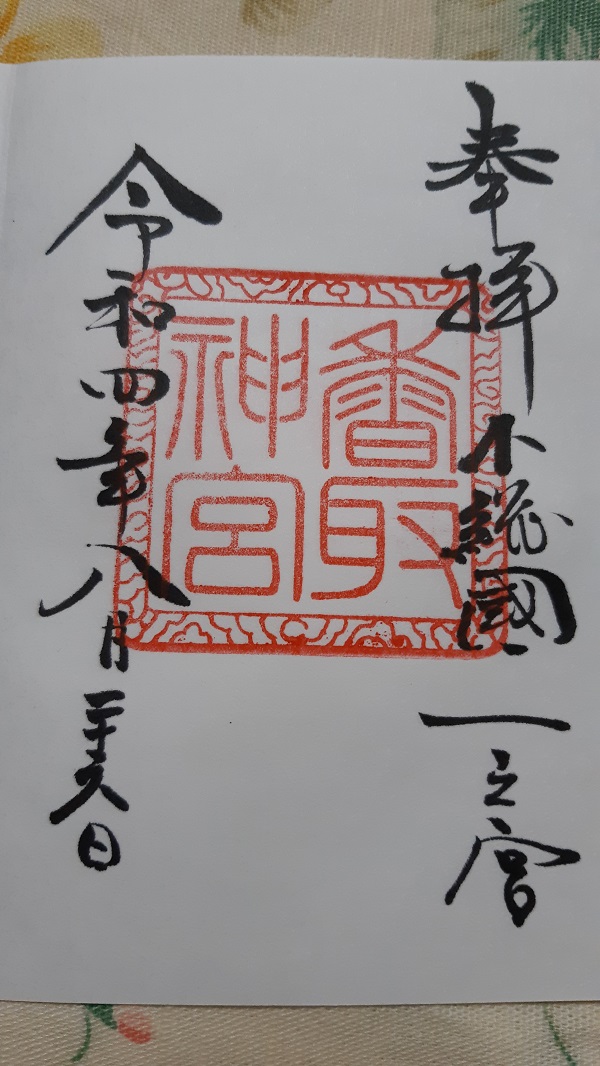 奉拝 下総國一之宮
香取
神宮
令和四年八月二十六日